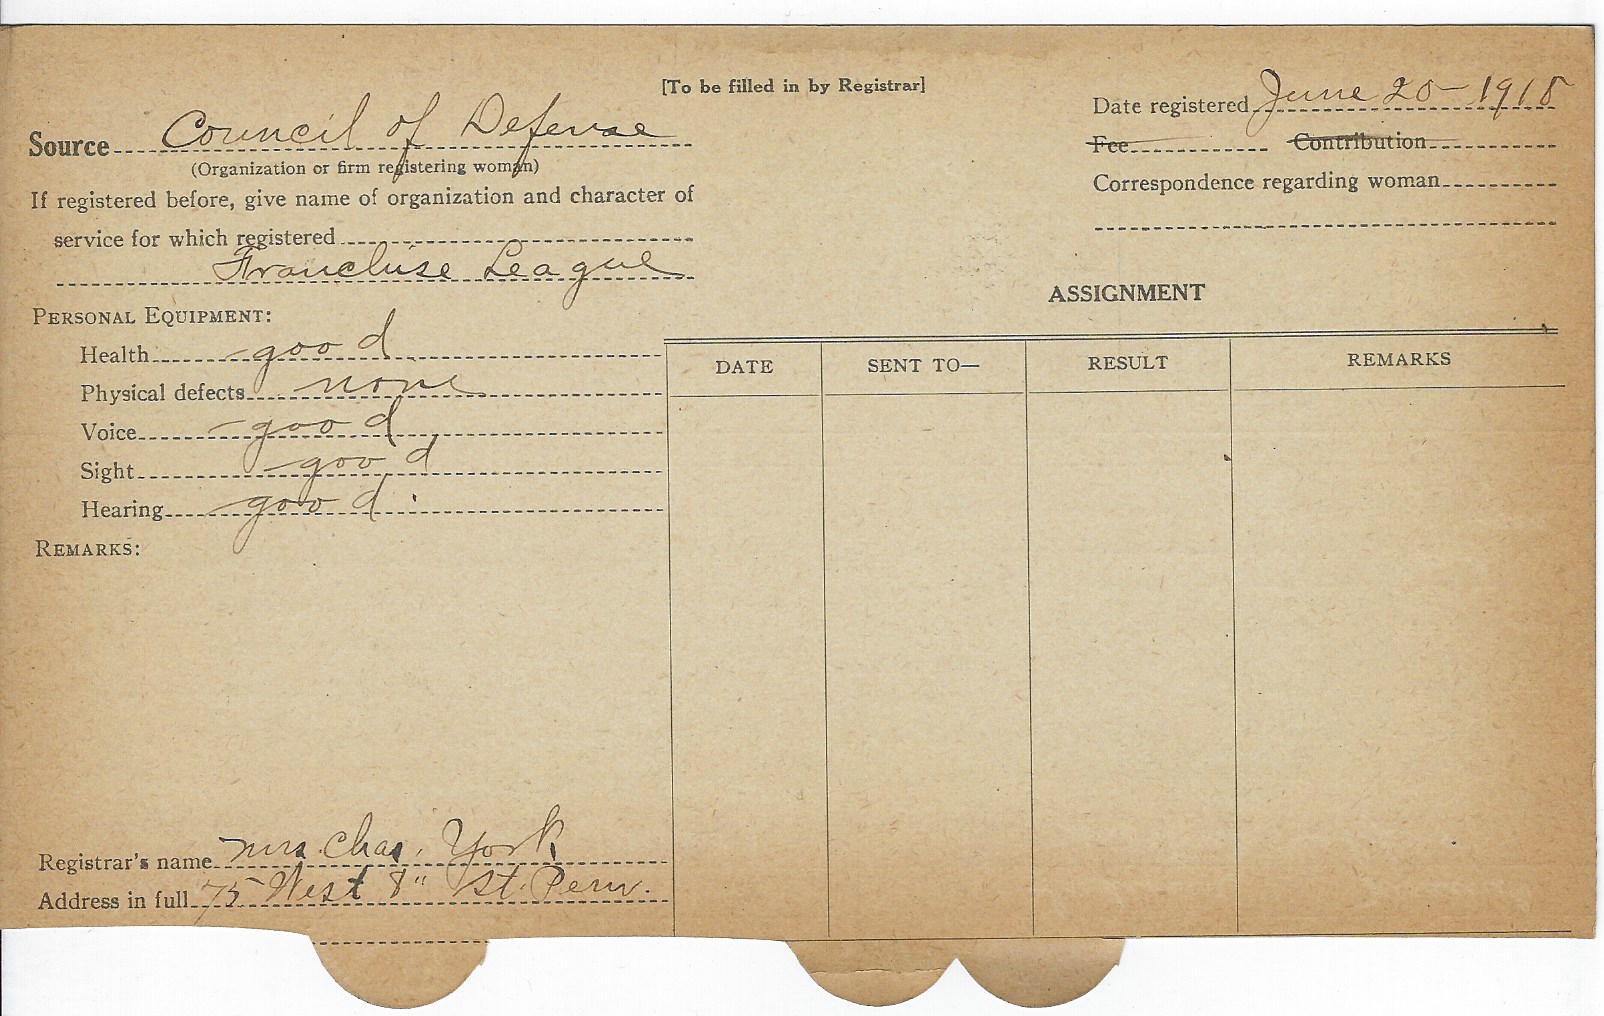 [To be filled in by Registrar]
Source Council of Defense
(Organization or firm registering woman)
If registered before, give name of organization and character of
service for which registered
Franchise League
PERSONAL EQUIPMENT:
Health good
Physical defects none
Voice good
Sight good
Hearing good
REMARKS:
Registrar's name Mrs. Chas. York
Address in full 75 West 8" St. Peru.
Date registered June 20 - 1918
Fee Contribution
Correspondence regarding woman
ASSIGNMENT
DATE SENT TO— RESULT REMARKS